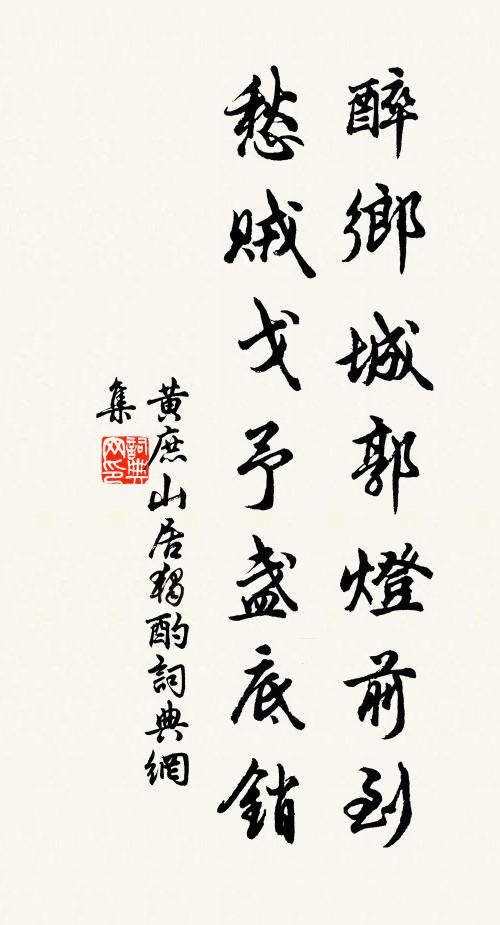 醉鄉城郭燈前到
愁賊戈予盞底銷
黃庶山居獨酌詞典網
集
詞典
网印